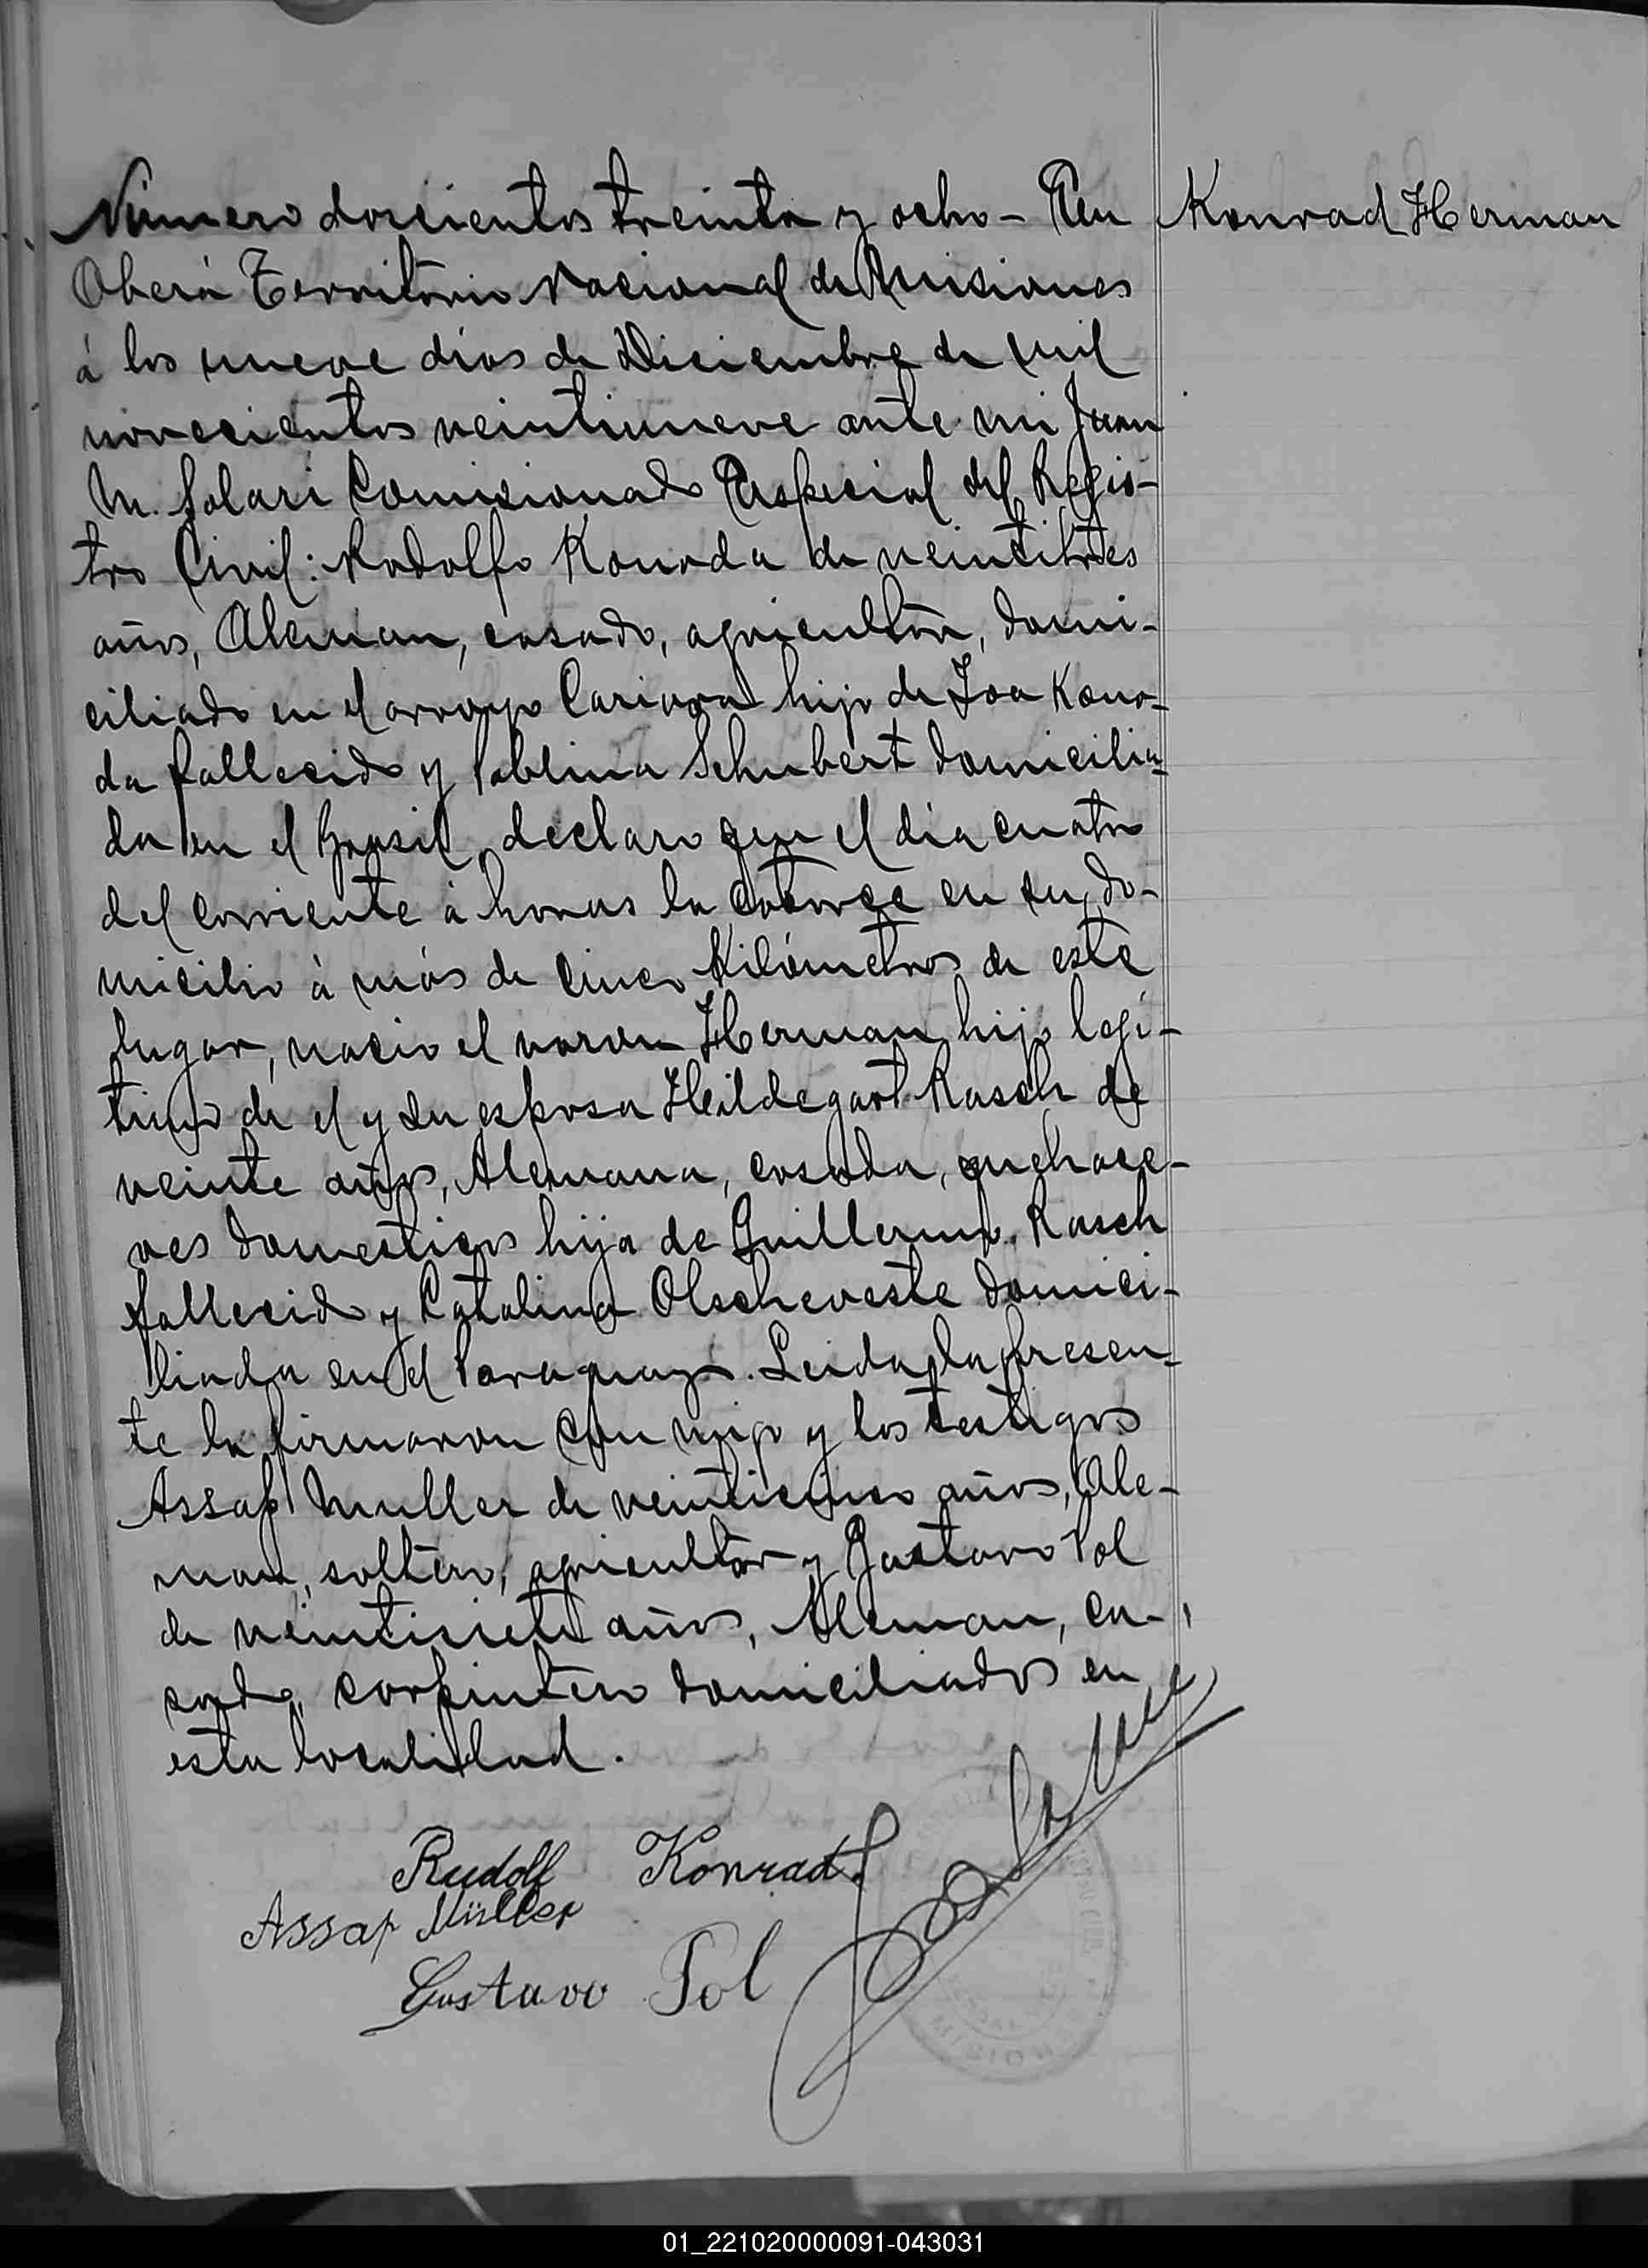 Número doscientos treinta y ocho - En
Konrad Herman
Oberá Territorio Nacional de Misiones
á los nueve dias de Diciembre de mil
novecientos veintinueve ante mi Juan
M. Solari Comisionado Especial del Regis-
tro Civil: Rodolfo Konrada de veintitres
años, Aleman, casado, agricultor, domi-
ciliado en el arroyo hijo de Konra-
da fallecido y Pablina Schubert domicilia-
da en el Brasil, declaro que el dia cuatro
del corriente á horas la catorce en su do-
micilio á más de cinco Kilómetros de este
lugar, nacio el varon Herman hijo legi-
timo de el y su esposa Heildegart Rasch de
veinte años, Alemana, casada, quehace-
res domesticos hija de Guillermo Rasch
fallecido y Catalina Olscheveste domici-
liada en el Paraguay. Leida la presen-
te la firmaron con migo y los testigos
Assaf Muller de veinticinco años, Ale-
man, soltero, agricultor y Gustavo Pol
de veintisiete años, Aleman, ca-
sado, carpintero domiciliados en
esta localidad.
Rudolf Konrad
Assaf Müller
Gustavo Pol
MISIONES
01_221020000091-043031